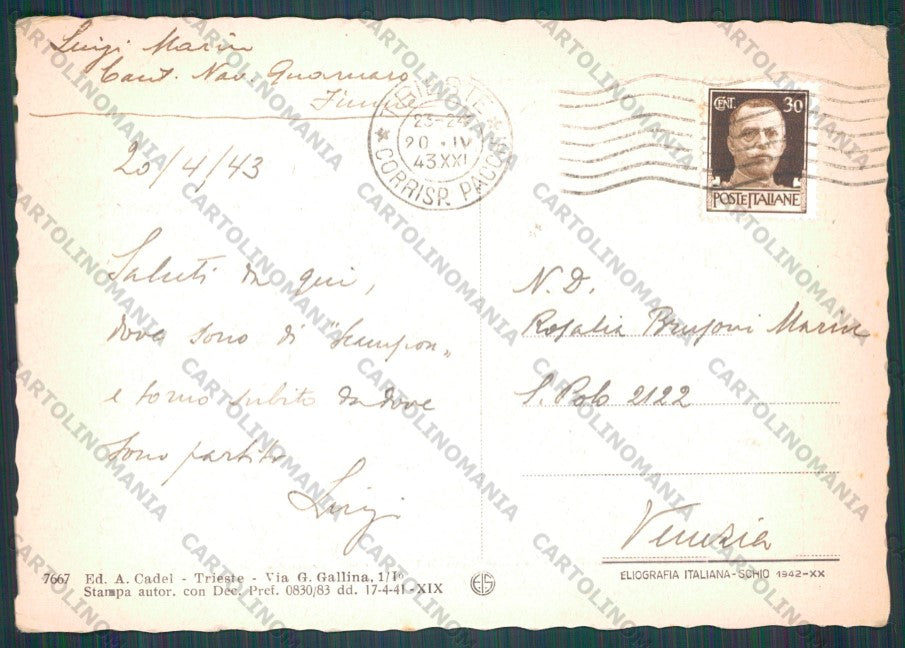 Luigi Marin
Cant. Nav. Quarnaro
Fiume
20/4/43
TRIESTE
23-24
20 · IV
43 XXI
CORRISP. PACCHI
CENT. 30
POSTE ITALIANE
Saluti da qui,
dove sono di "scampon"
e torno subito da dove
sono partito
Luigi
N. D.
Rosalia Brusoni Marin
S. Polo 2122
Venezia
7667 Ed. A. Cadel - Trieste - Via G. Gallina, 1/I°
Stampa autor. con Dec. Pref. 0830/83 dd. 17-4-41 - XIX
ELIOGRAFIA ITALIANA-SCHIO 1942-XX
CARTOLINOMANIA